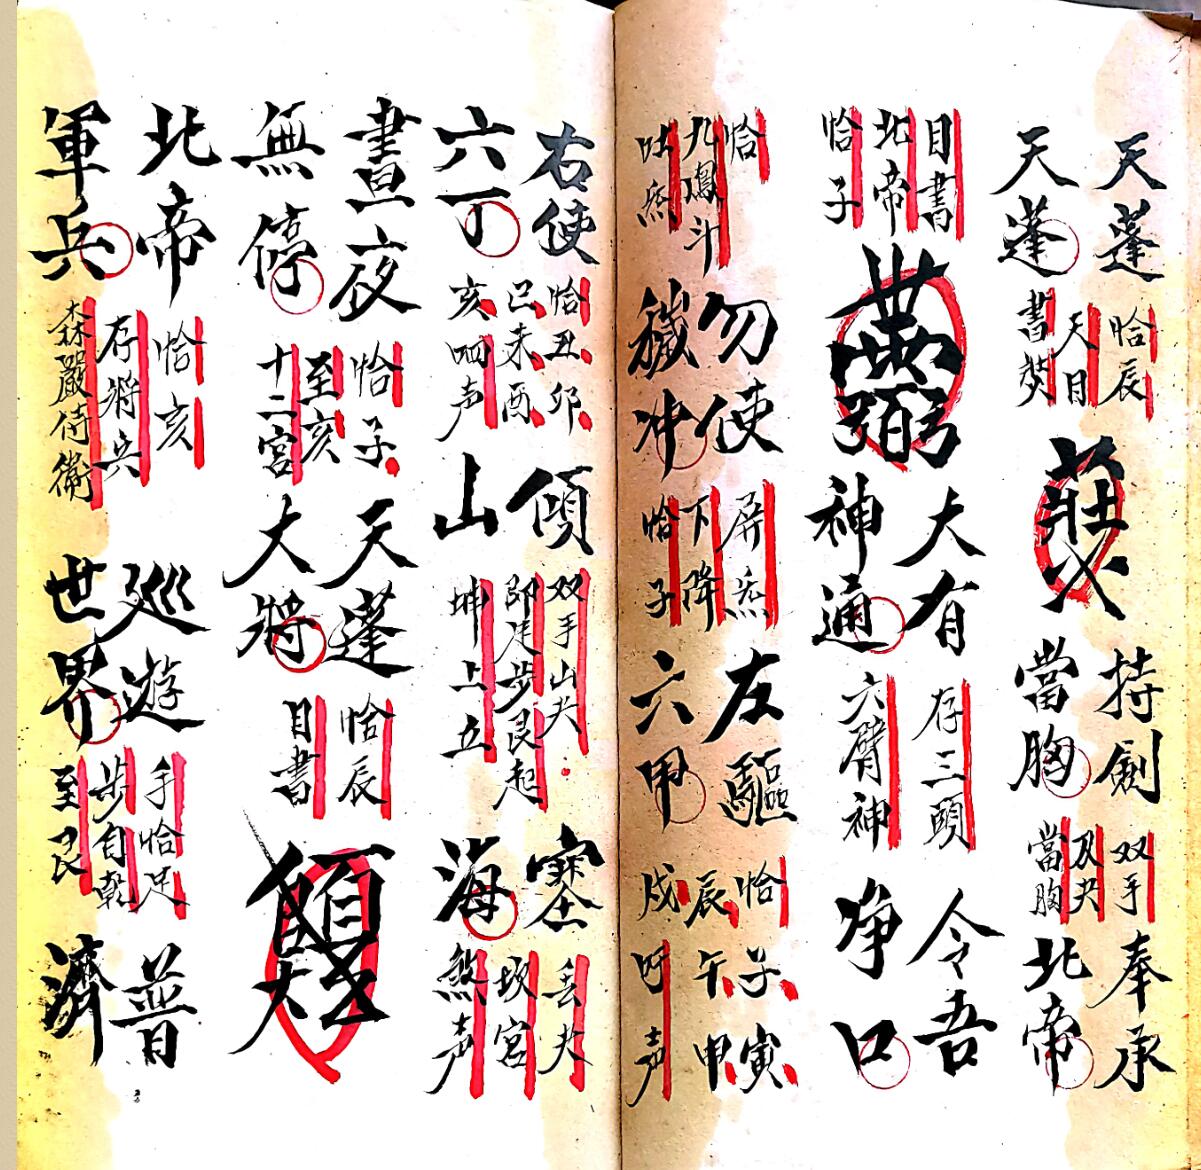 天蓬
天蓬
恰辰
天目
書
持劍
當胸
双手
及夬
當胸
奉承
北帝
目書
北帝
恰子
大有
神通
存三頭
六臂神
令吾
净口
恰
九鳳斗
吐炁
勿使
穢冲
屏炁
下降
恰子
左驅
六甲
恰子寅
辰午申
戌呼声
右使
六丁
恰丑卯
巳未酉
亥呬声
傾
山
双手山夬
即足步艮起
坤上立
塞
海
丢夬
坎宮
煞声
晝夜
無停
恰子
至亥
十二宮
天蓬
大將
恰辰
目書
北帝
軍兵
恰亥
存將兵
森嚴侍衛
巡遊
世界
手恰足
步自乾
至艮
普
濟